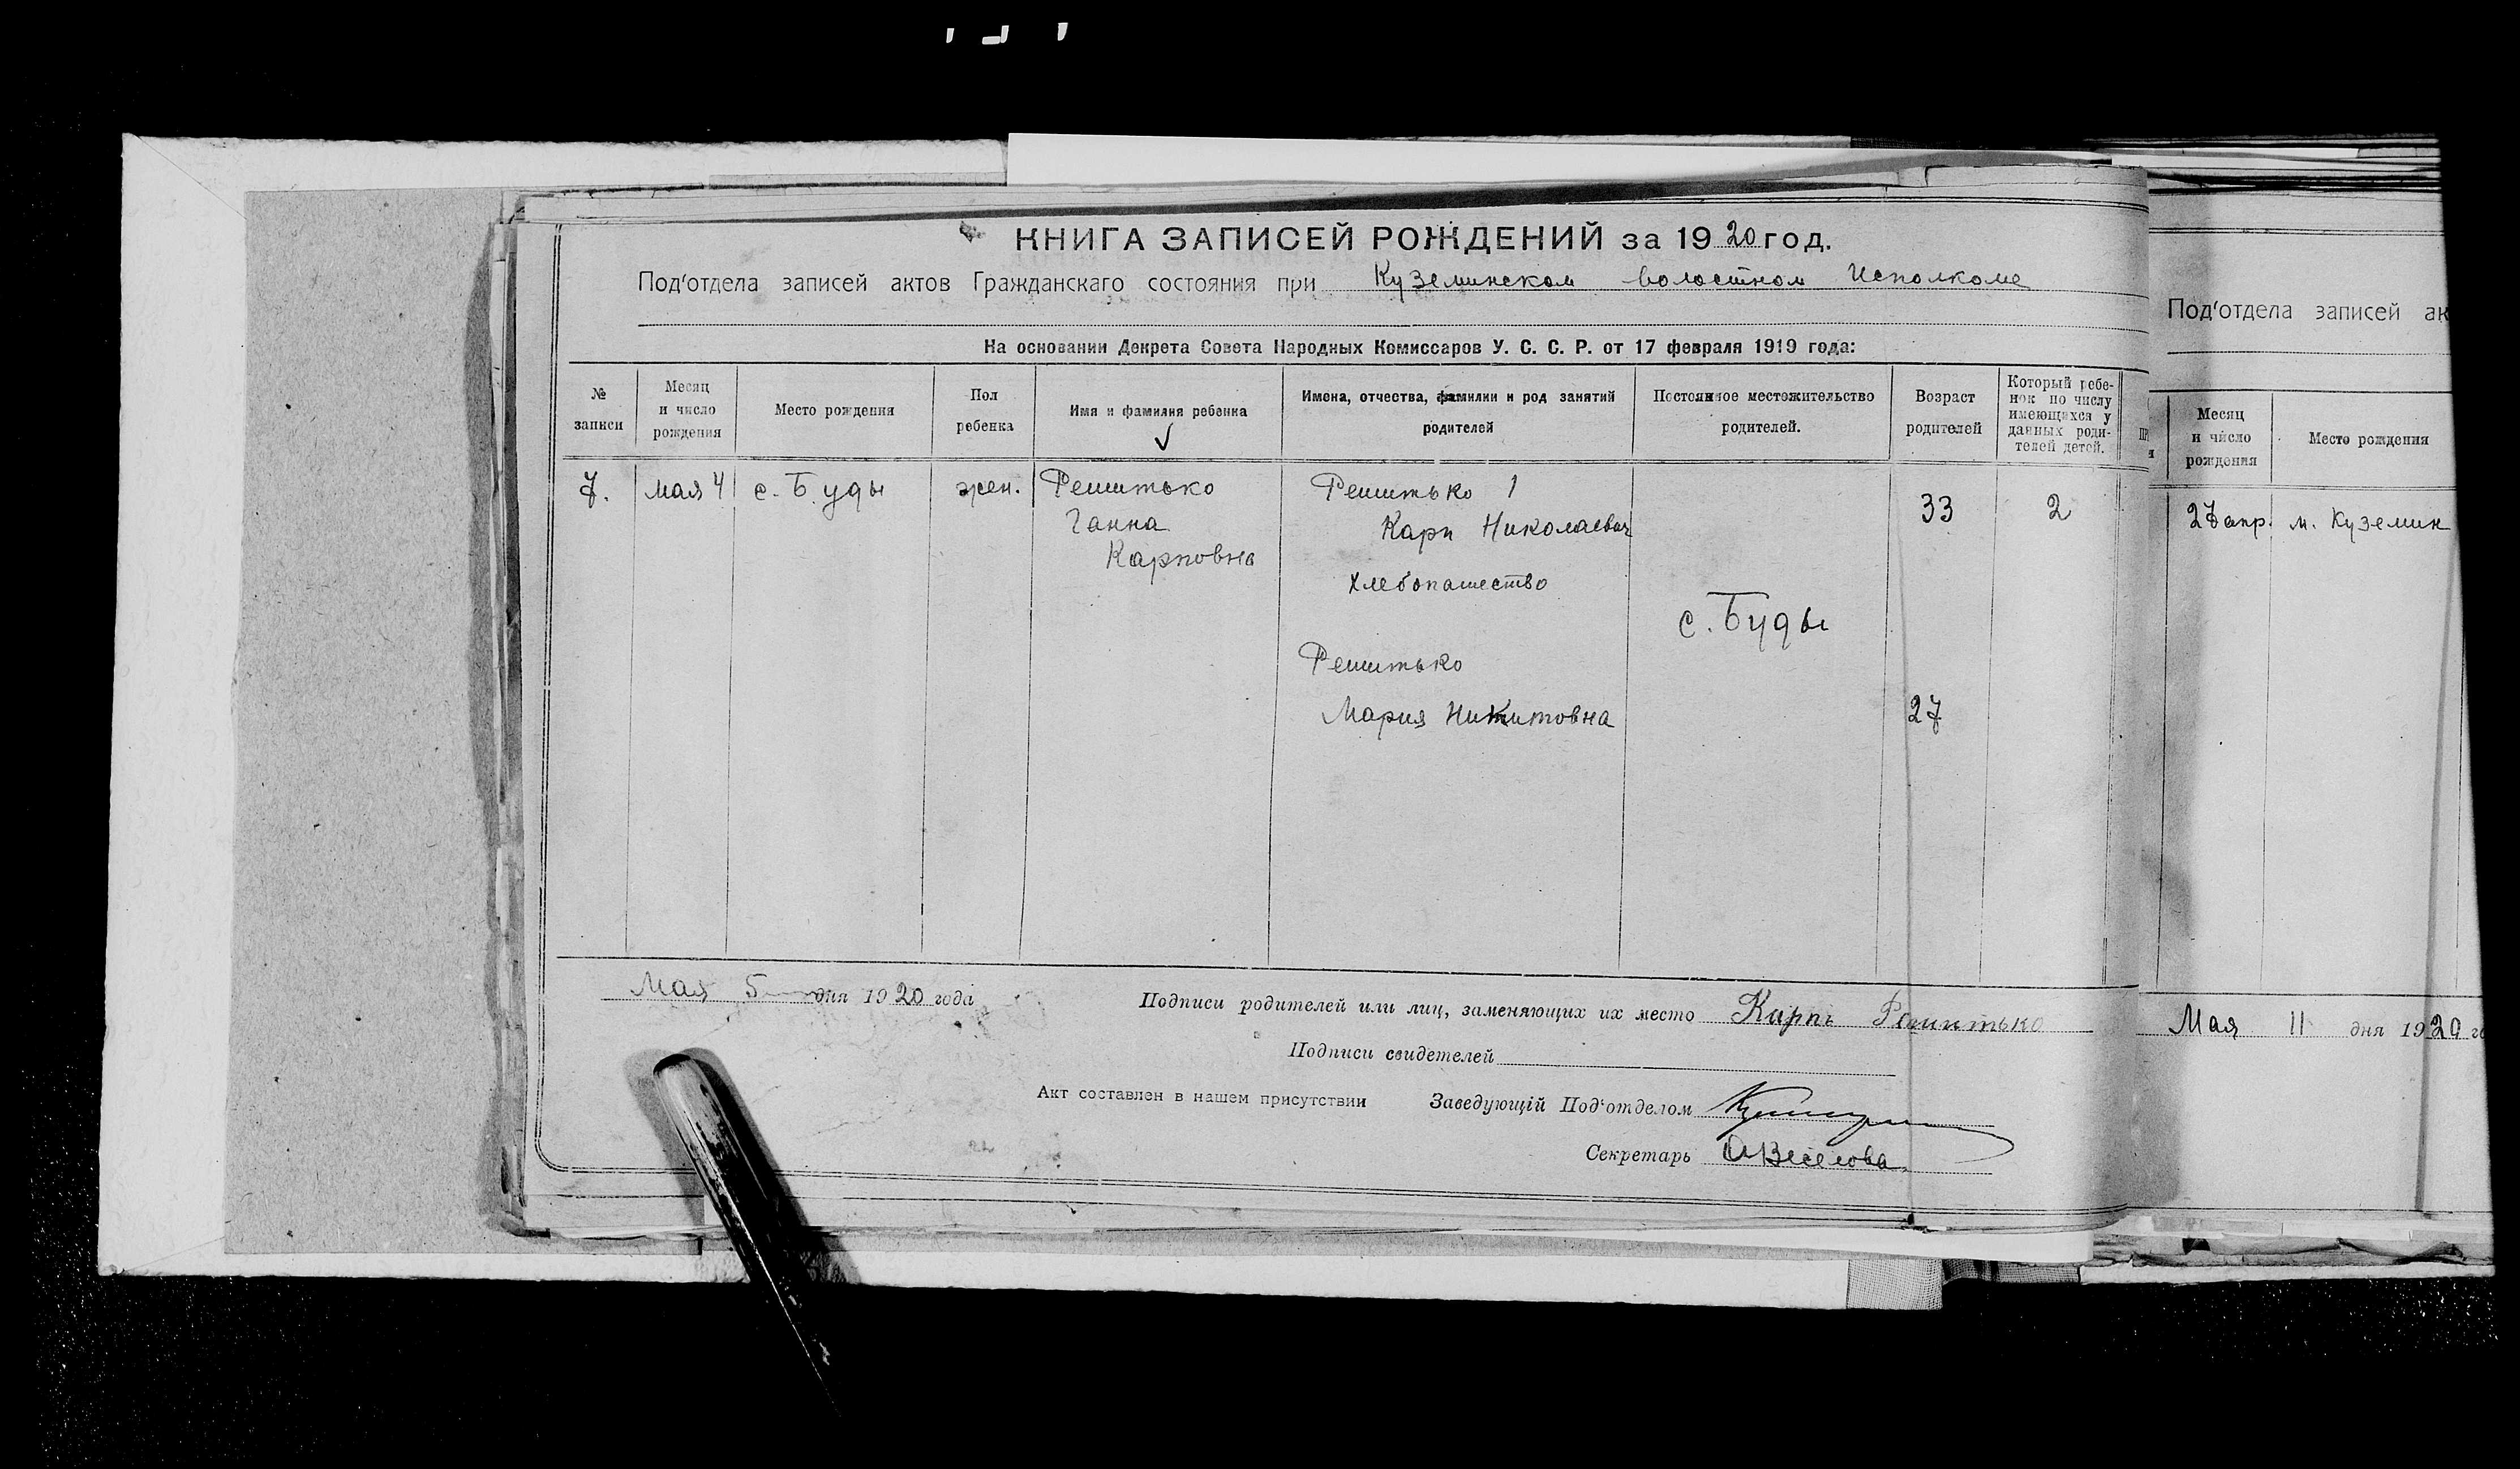 КНИГА ЗАПИСЕЙ РОЖДЕНИЙ за 1920 год.
Под'отдела записей актов Гражданскаго состояния при Куземинском волостном Исполкоме
На основании Декрета Совета Народных Комиссаров У. С. С. Р. от 17 февраля 1919 года:
№ записи
Месяц и число рождения
Место рождения
Пол ребенка
Имя и фамилия ребенка
Имена, отчества, фамилии и род занятий родителей
Постоянное местожительство родителей.
Возраст родителей
Который ребенок по числу имеющихся у данных родителей детей.
7.
мая 4
с. Буды
жен.
Решитько
Ганна
Карповна
Решитько 1
Карп Николаевич
хлебопашество
Решитько
Мария Никитовна
с. Буды
33
27
2
Мая 5 дня 1920 года
Подписи родителей или лиц, заменяющих их место Карпъ Решитько
Подписи свидетелей
Акт составлен в нашем присутствии Заведующій Под'отделом
Секретарь
Под'отдела записей ак
Месяц и число рождения
Место рождения
27 апр.
м. Куземин
Мая 11 дня 1920 го